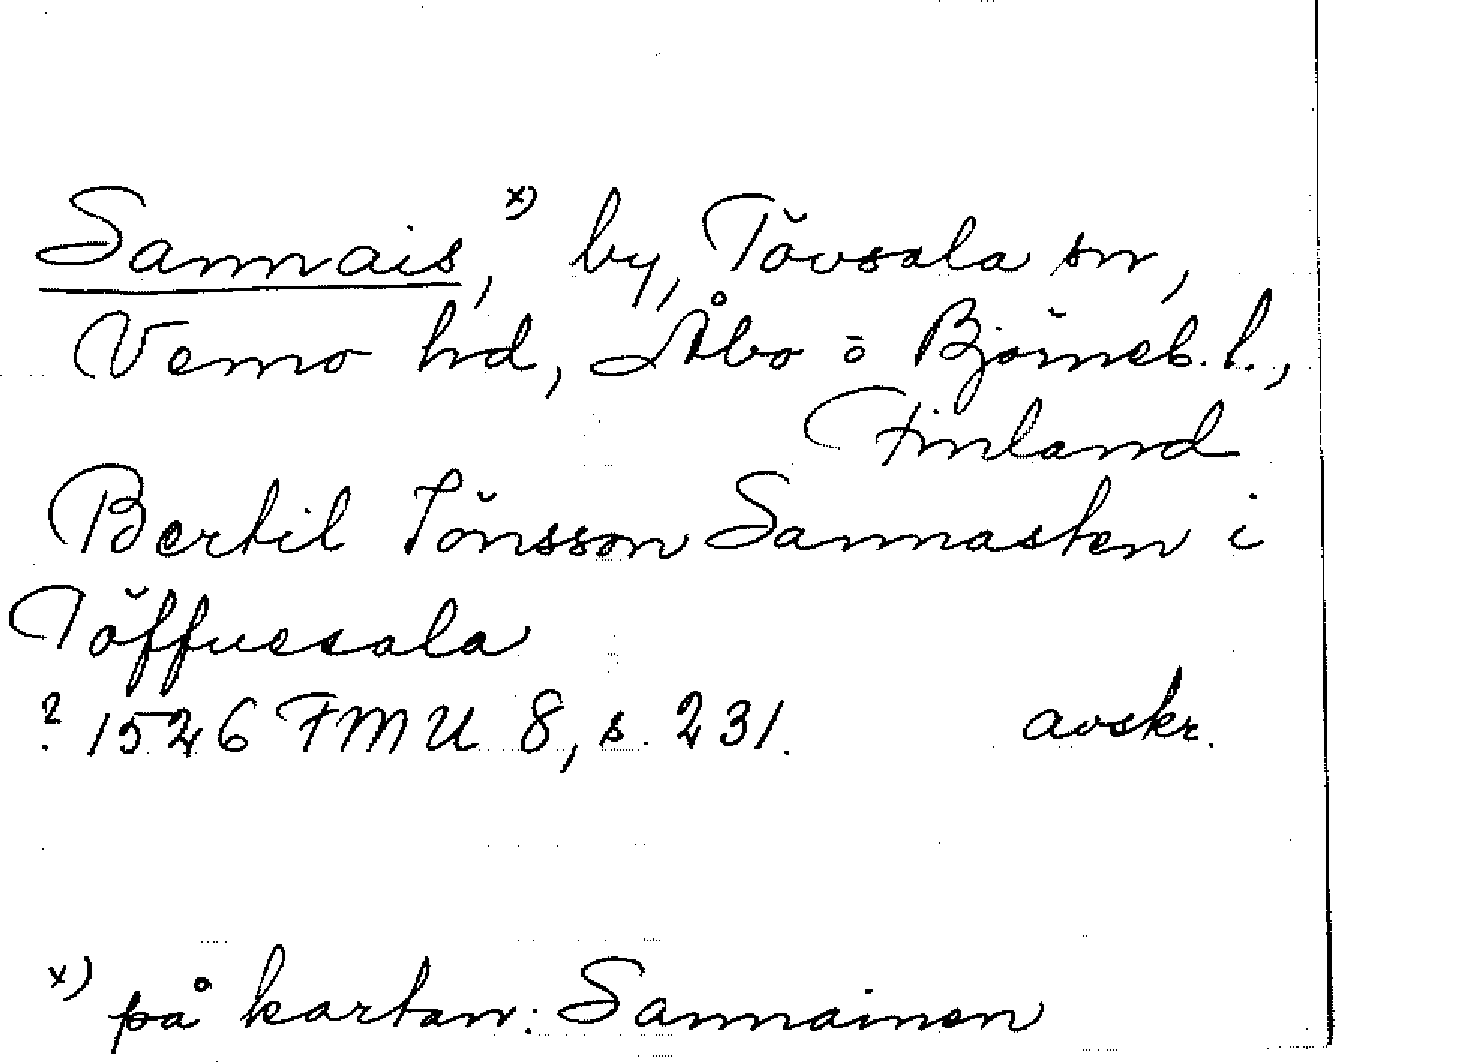 Sannais,ˣ⁾ by, Tövsala sn,
Vemo hd, Åbo o Björneb. l.,
Finland
Bertil Jönsson Sannasten i
Töffuesala
? 1526 FMU 8, s. 231. avskr.
x) på kartan: Sannainen